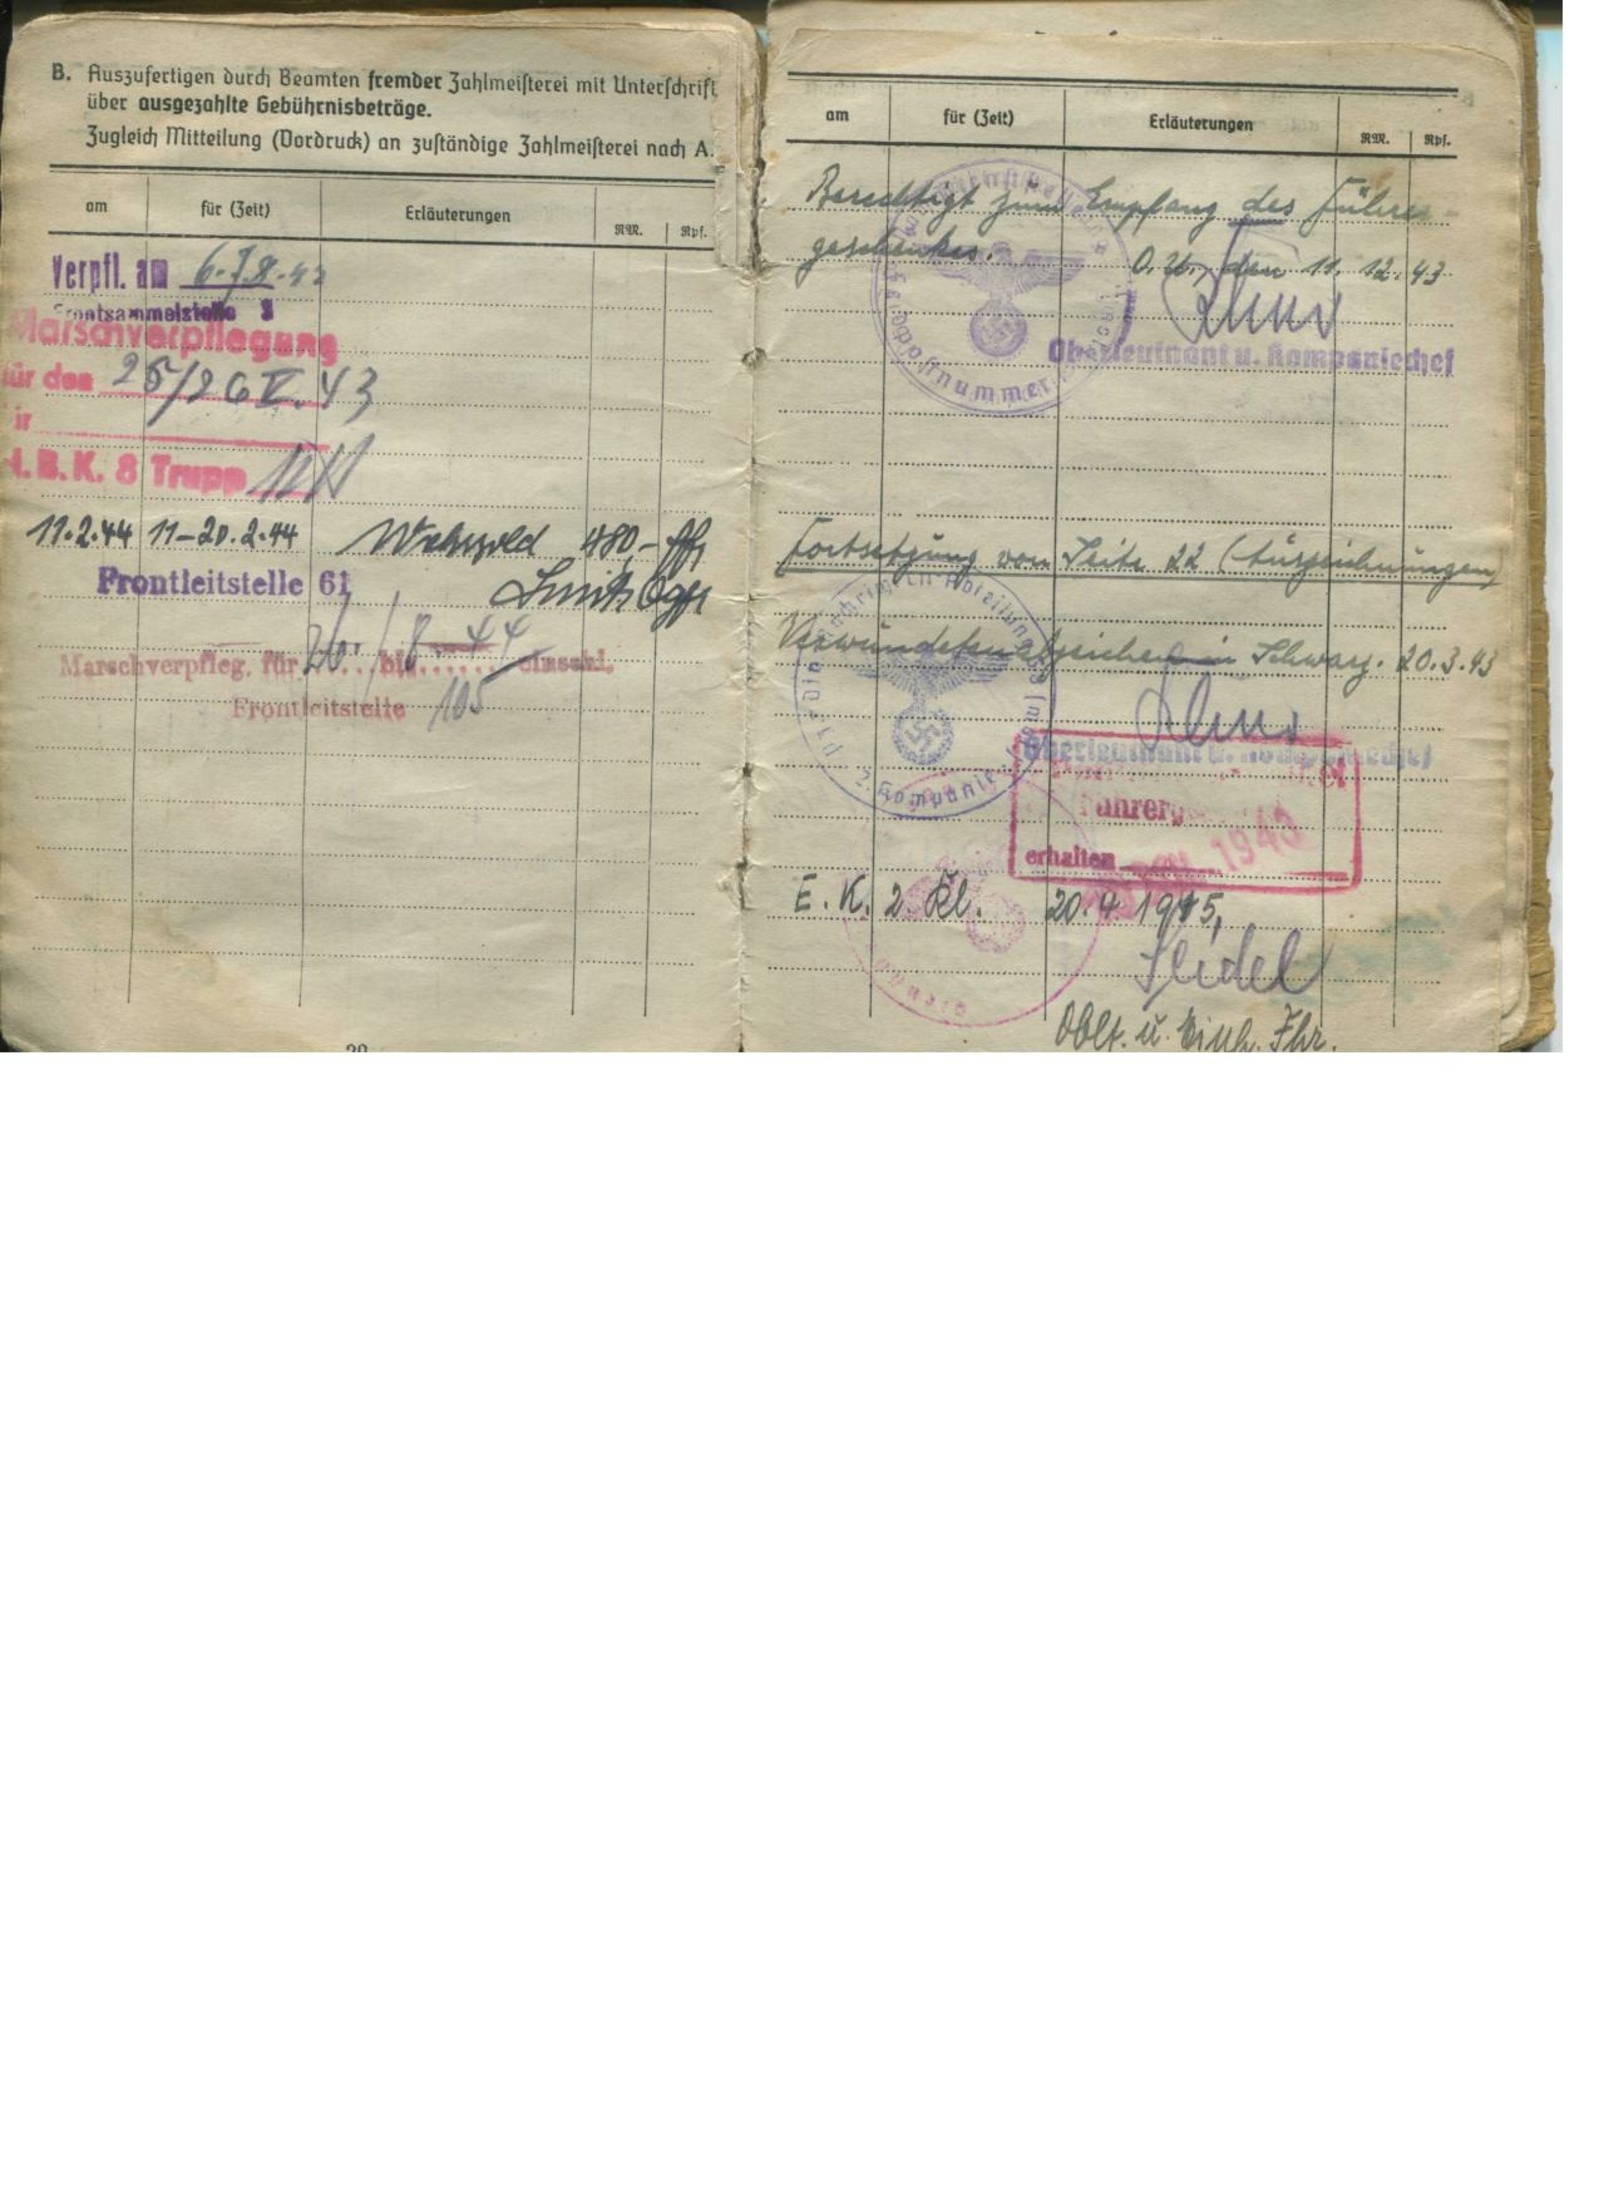 B. Auszufertigen durch Beamten fremder Zahlmeisterei mit Unterschrift
über ausgezahlte Gebührnisbeträge.
Zugleich Mitteilung (Vordruck) an zuständige Zahlmeisterei nach A.
am für (Zeit) Erläuterungen RM. Rpf.
Verpfl. am 6.7.8.
Frontsammelstelle 3
Marschverpflegung
für den 25/26 V. 43
B. K. 8 Trupp
11.2.44 11–20.2.44 Wehrsold 480,– ffr
Frontleitstelle 61
Ogfr
Marschverpfleg. für 26. / 8. 44
Frontleitstelle 105
am für (Zeit) Erläuterungen RM. Rpf.
Berechtigt zum Empfang des Führer-
geschenkes. O.U., den 11. 12. 43
Oberleutnant u. Kompaniechef
Feldpostnummer
Fortsetzung von Seite 22 (Auszeichnungen)
Verwundetenabzeichen in Schwarz. 20.3.43
Oberleutnant u. Kompaniechef
2. Kompanie
erhalten
E. K. 2. Kl. 20. 4. 1945,
Seidel
Oblt. u. Einh. Fhr.